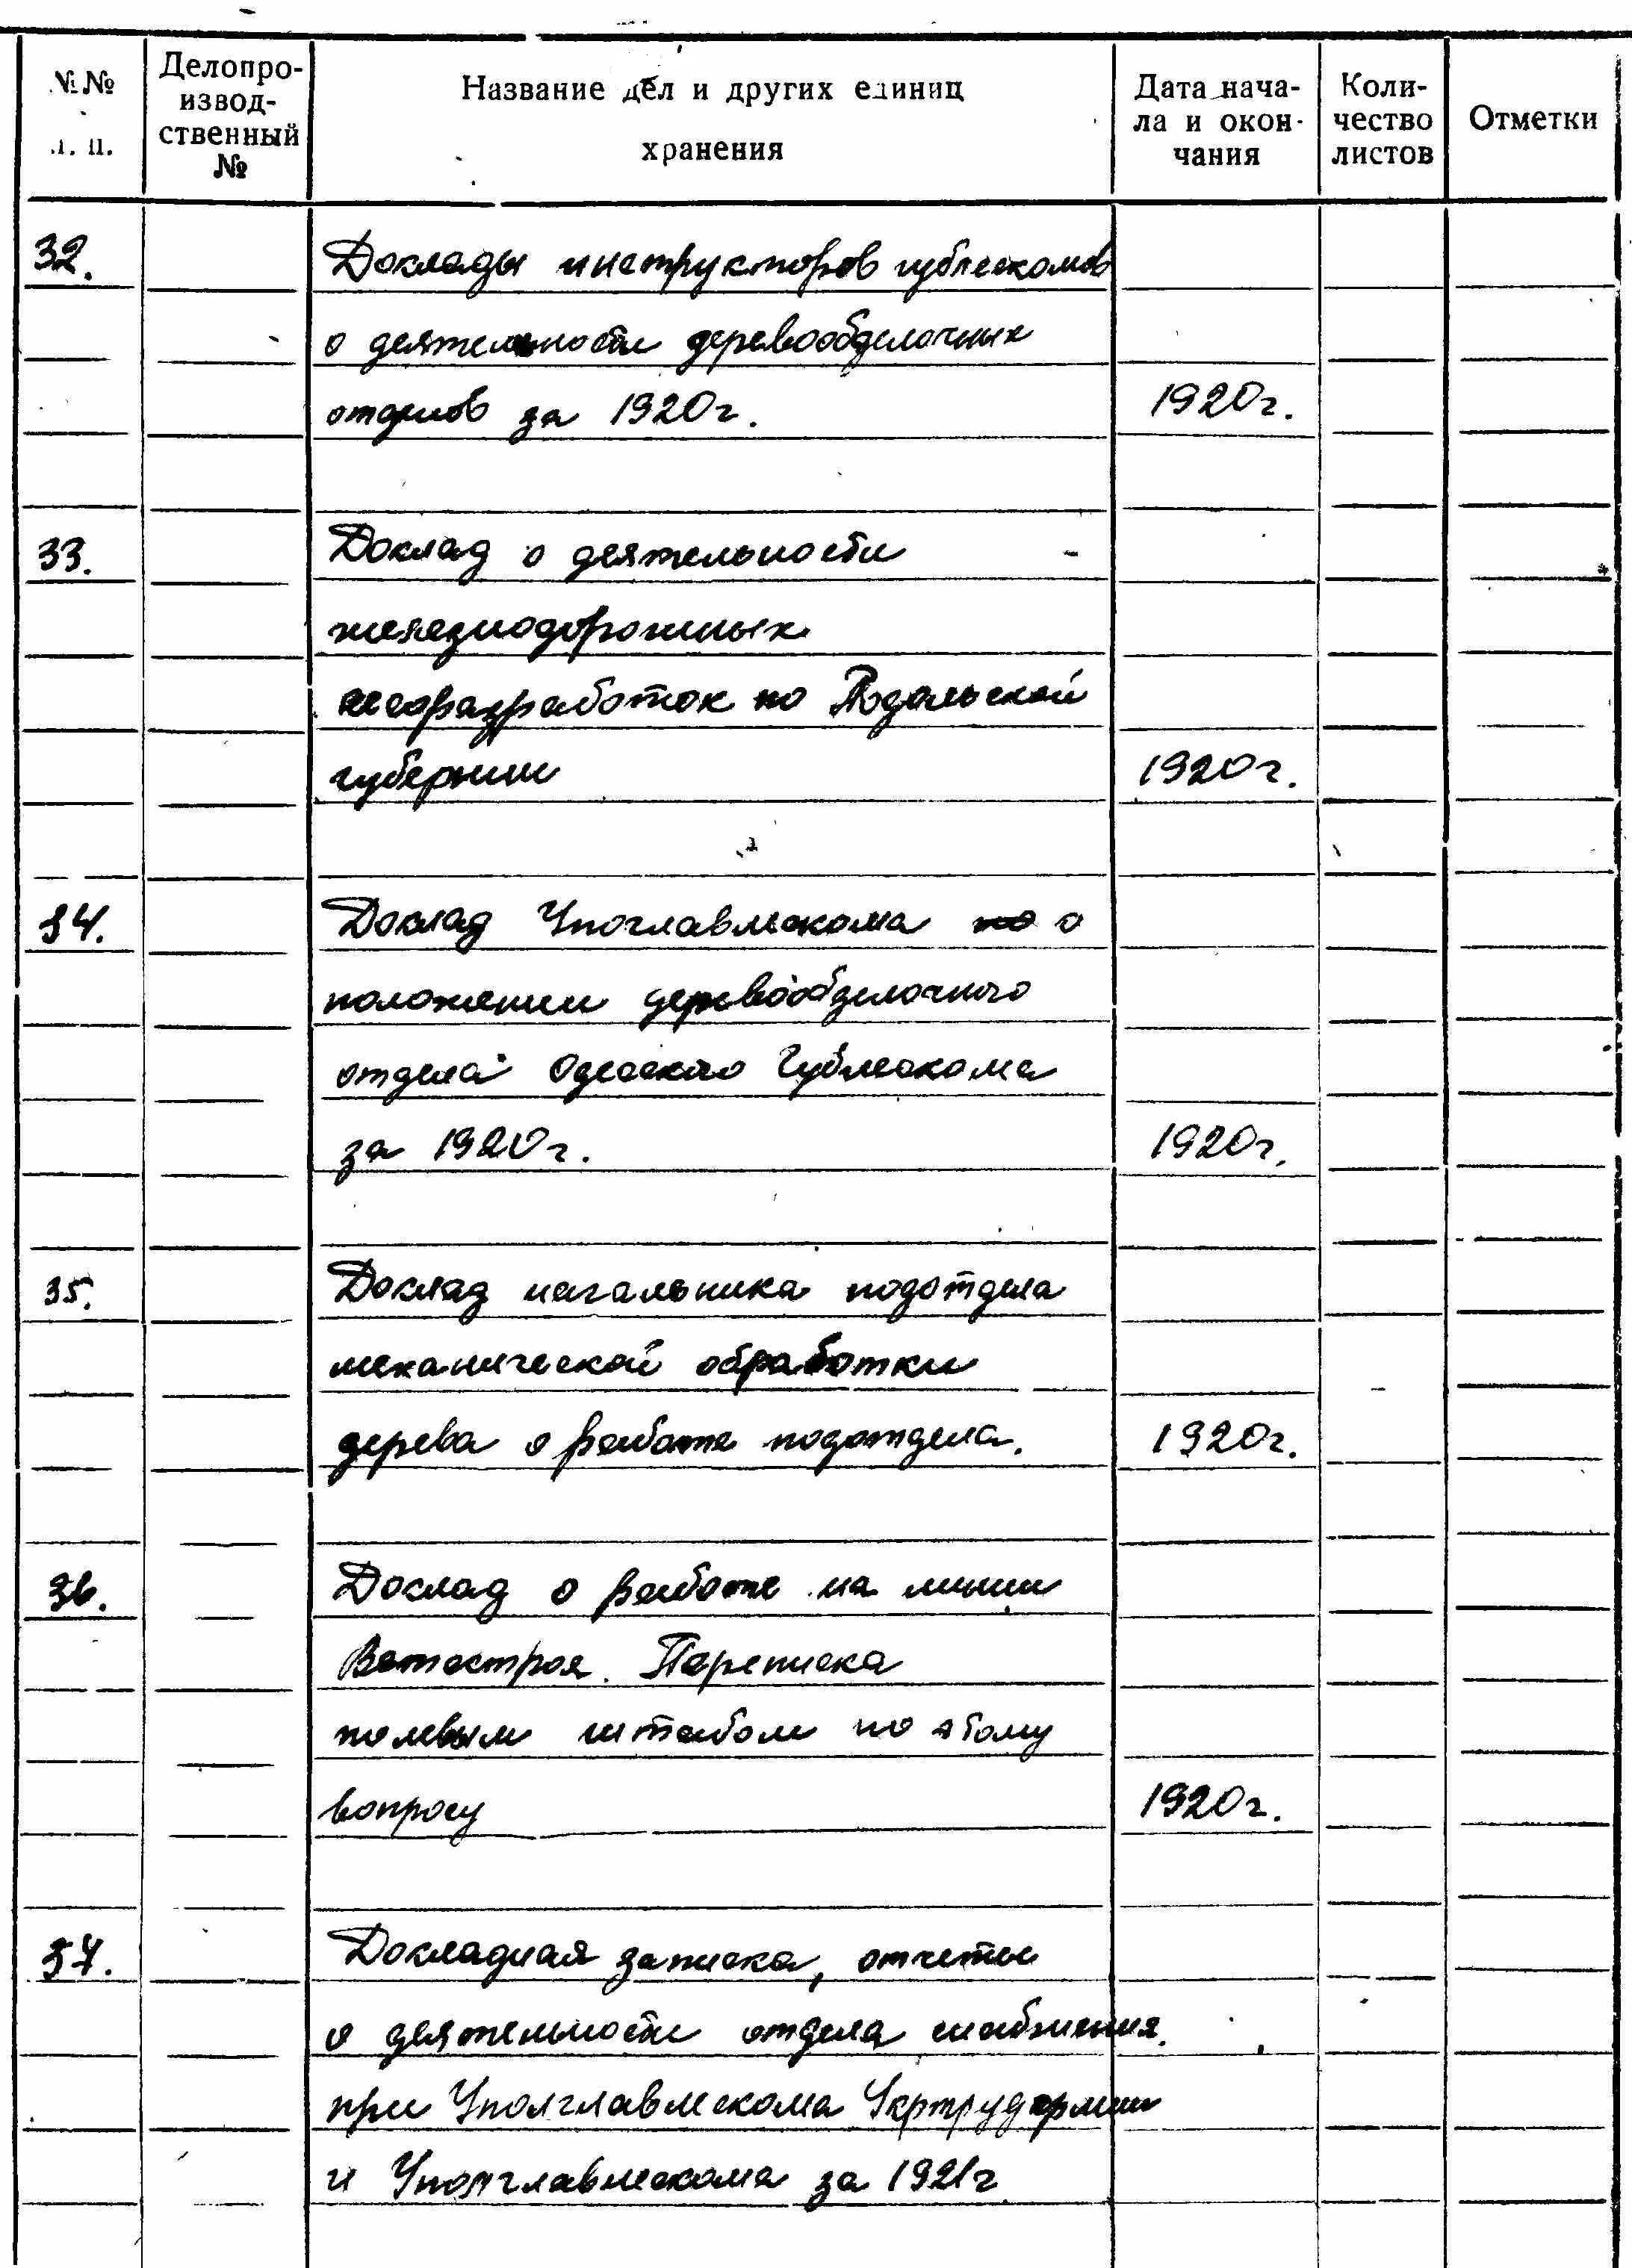 №№ п. п.
Делопро-
извод-
ственный
№
Название дел и других единиц
хранения
Дата нача-
ла и окон-
чания
Коли-
чество
листов
Отметки
32. Доклады инструкторов гублескомов
о деятельности деревообделочных
отделов за 1920г. 1920г.
33. Доклад о деятельности
железнодорожных
лесоразработок по Подольской
губернии 1920г.
34. Доклад Упоглавлескома по о
положении деревообделочного
отдела Одесского Гублескома
за 1920г. 1920г.
35. Доклад начальника подотдела
механической обработки
дерева о работе подотдела. 1920г.
36. Доклад о работе на линии
Переписка
полевым штабом по этому
вопросу 1920г.
37. Докладная записка, отчеты
о деятельности отдела снабжения
при Уполглавлескома Укртрудармии
и Уполглавлескома за 1921г